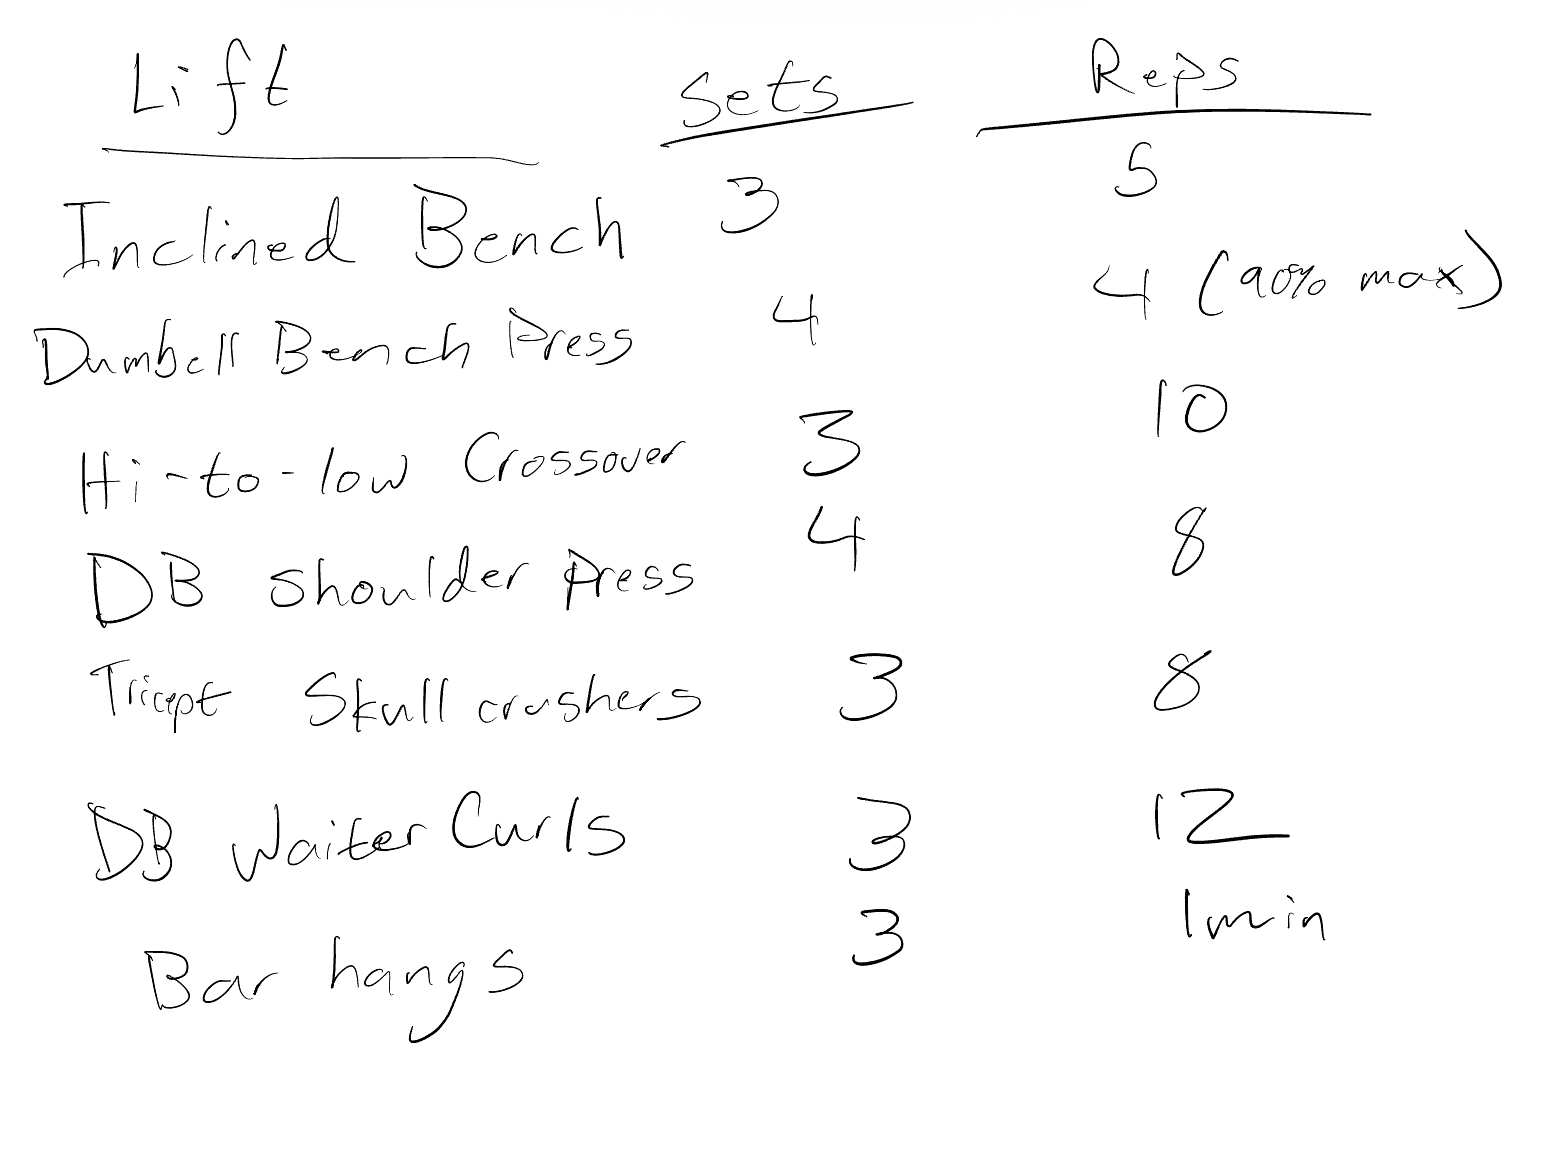 Lift Sets Reps
Inclined Bench 3 5
Dumbell Bench Press 4 4 (90% max)
Hi-to-low Crossover 3 10
DB Shoulder Press 4 8
Tricept Skull crushers 3 8
DB Waiter Curls 3 12
Bar hangs 3 1 min